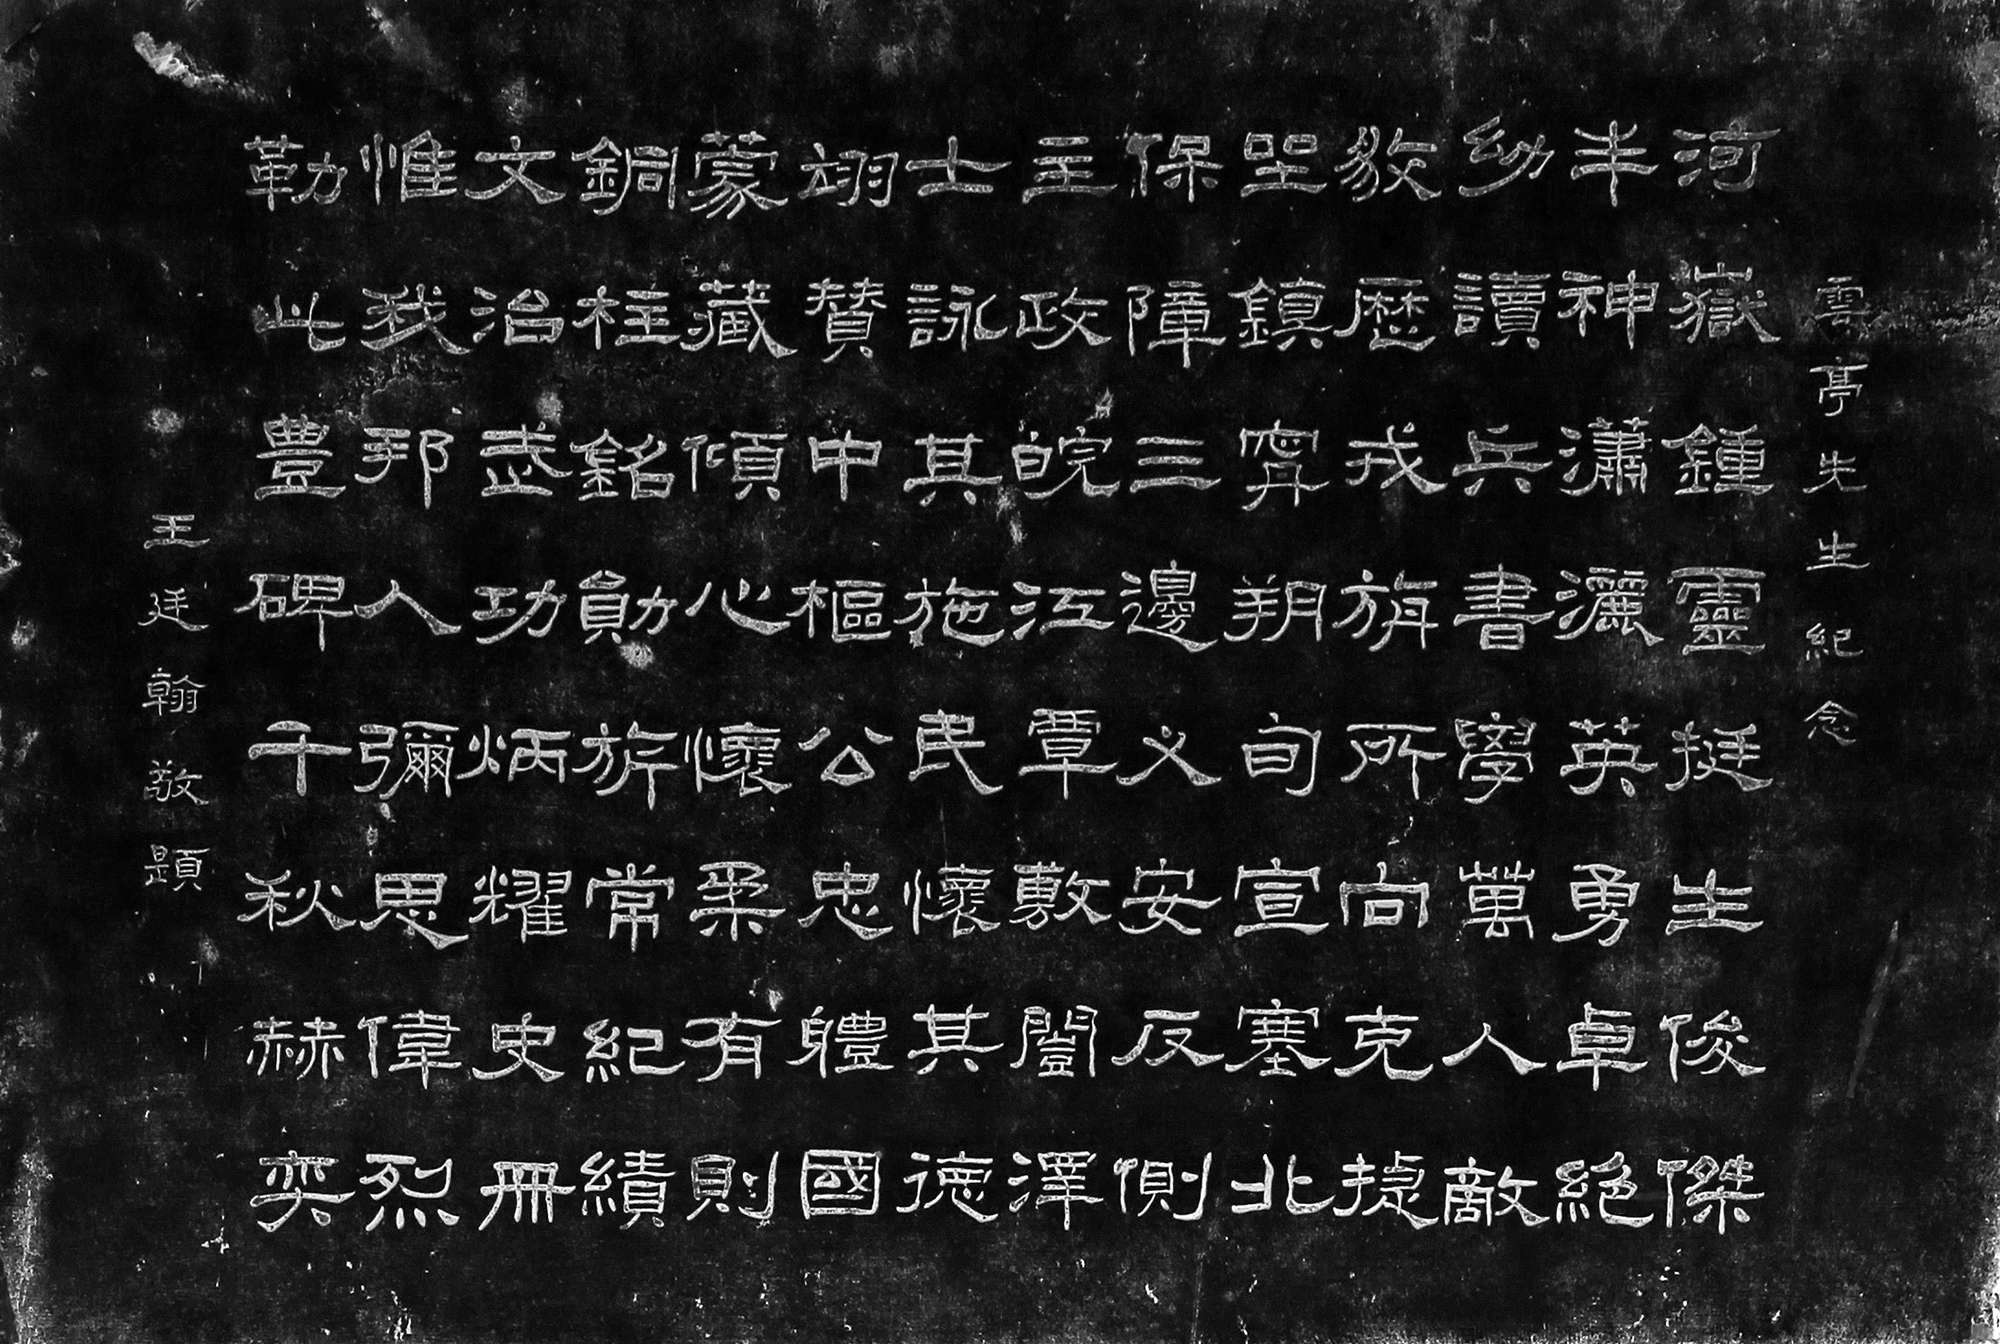 雲亭先生紀念
河嶽鍾靈挺生俊傑
丰神瀟灑英勇卓絕
幼讀兵書學萬人敵
敭歷戎旃所向克捷
坐鎮寧朔旬宣塞北
保障三邊乂安反側
主政皖江覃敷闓澤
士詠其施民懷其德
翊贊中樞公忠體國
蒙藏傾心懷柔有則
銅柱銘勛旂常紀績
文治武功炳耀史冊
惟我邦人彌思偉烈
勒此豐碑千秋赫奕
王廷翰敬題